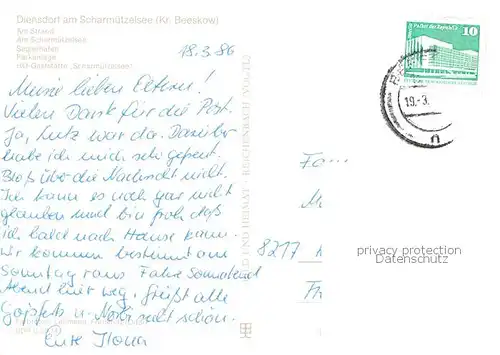 Diensdorf am Scharmützelsee (Kr. Beeskow)
Am Strand
Am Scharmützelsee
Seglerhafen
Parkanlage
HO-Gaststätte „Scharmützelsee“
18.3.86
Meine lieben Eltern!
Vielen Dank für die Post.
Ja, Lutz war da. Darüber
habe ich mich sehr gefreut.
Bloß über die Nachricht nicht.
Ich kann es noch gar nicht
glauben und bin froh, daß
ich bald nach Hause kann.
Wir kommen bestimmt am
Sonntag raus. Fahre Sonnabend
Abend hier weg. Grüßt alle
u. Macht's schön.
Eure Ilona
BILD UND HEIMAT REICHENBACH VOGTL
Palast der Republik
10
19.-3.
n
Fa...
8217
Fr
privacy protection
Datenschutz